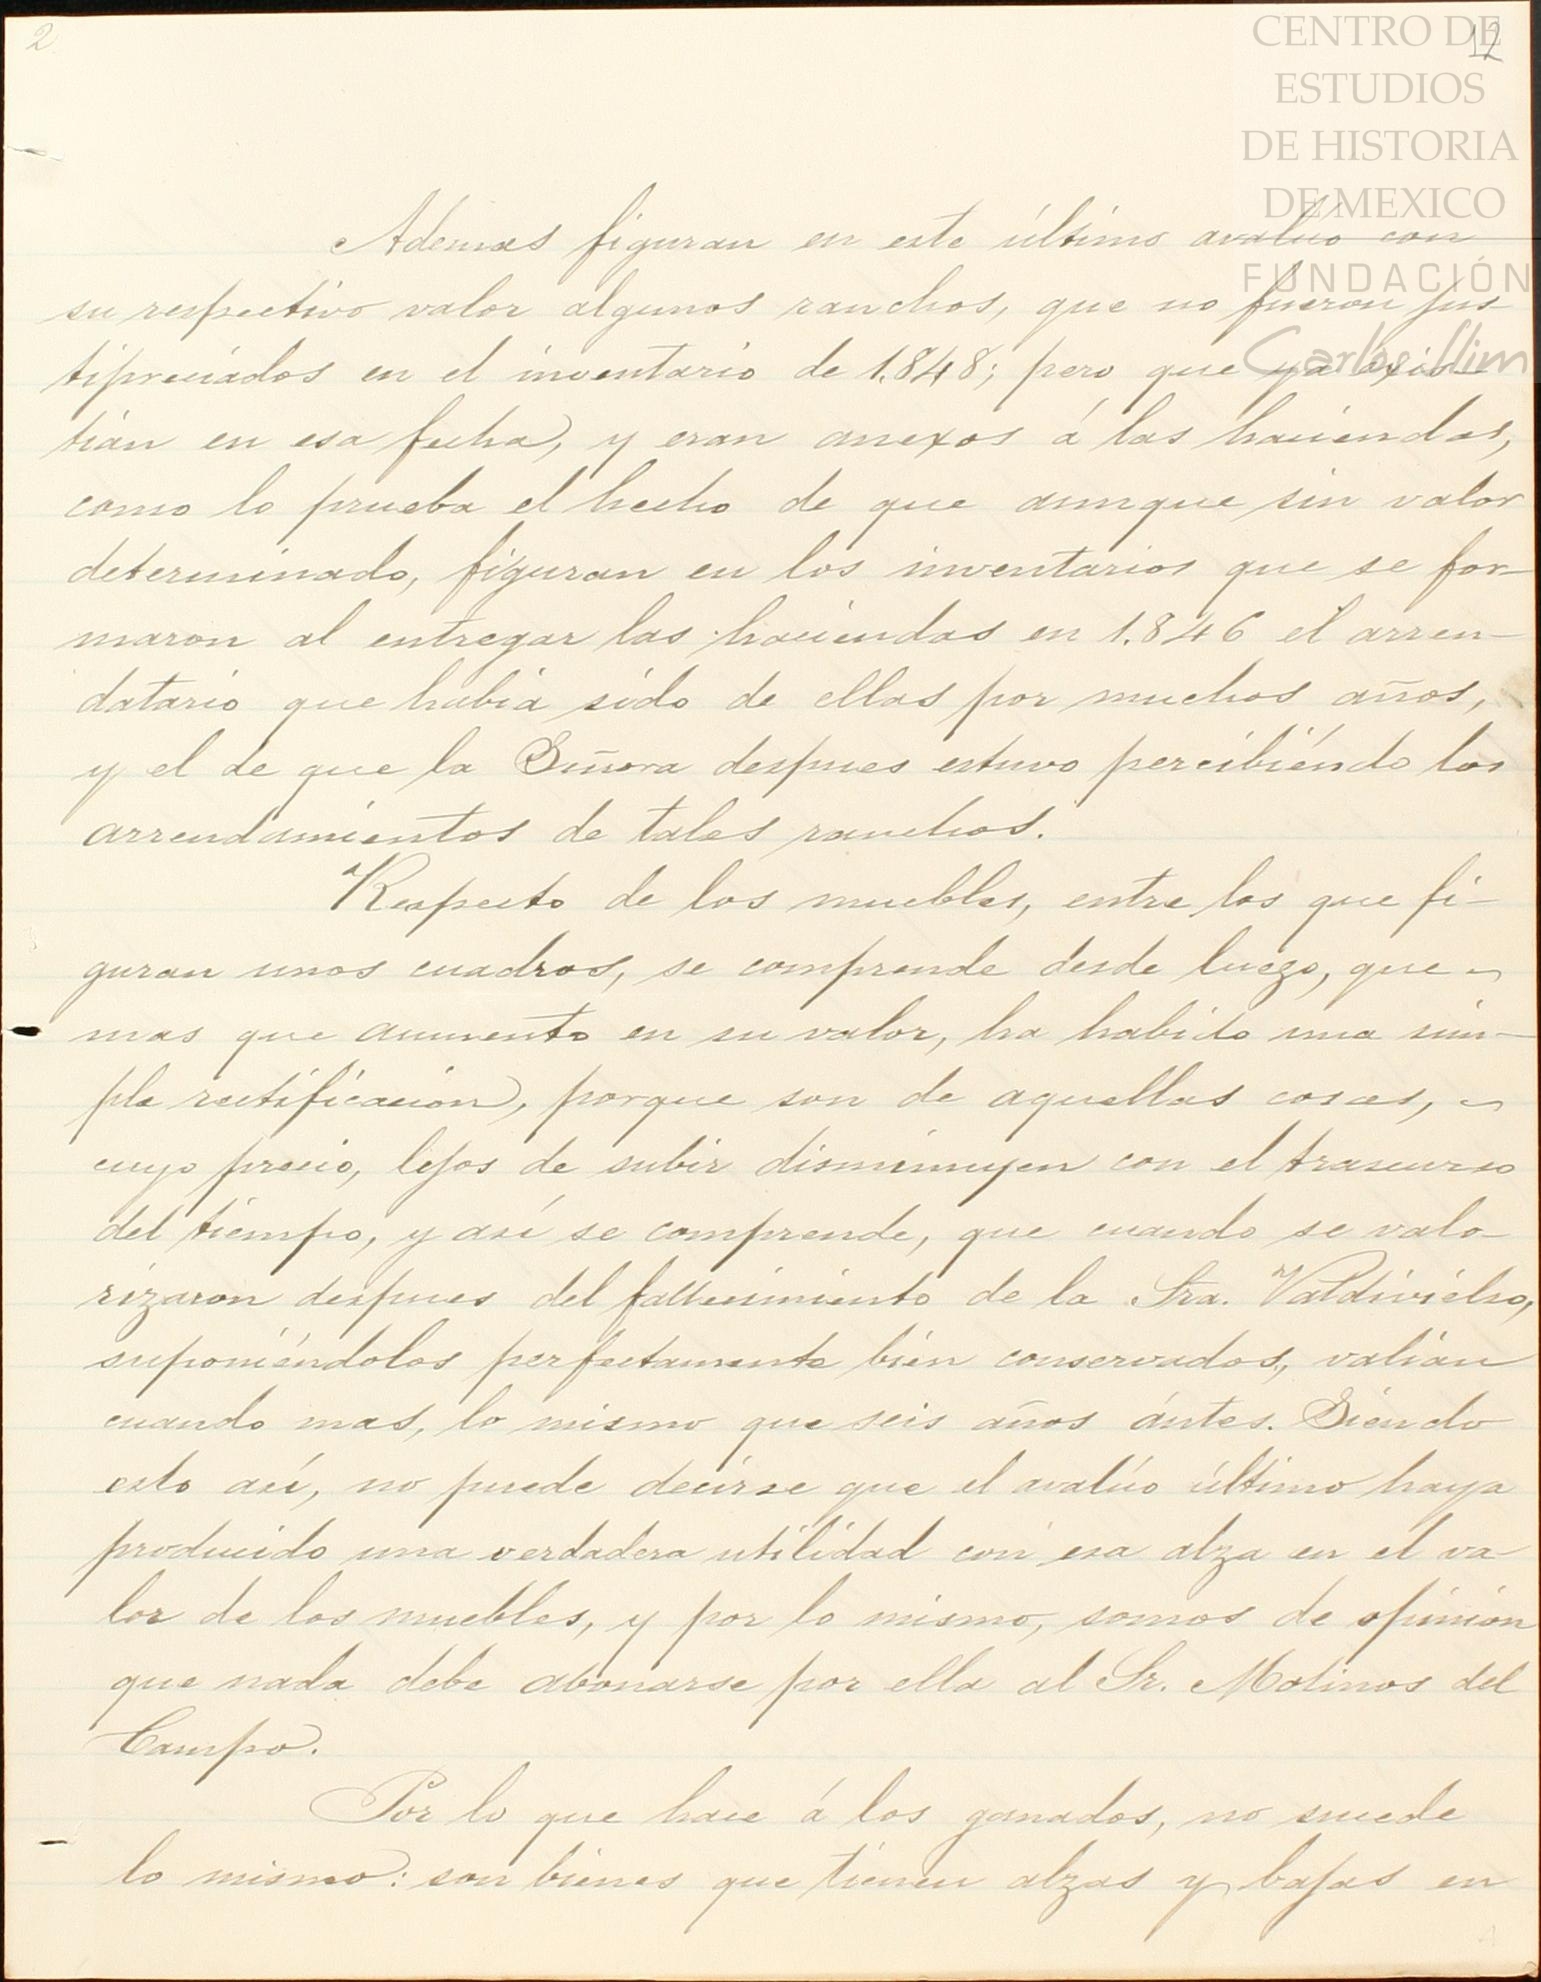 2
12
CENTRO DE
ESTUDIOS
DE HISTORIA
DE MEXICO
FUNDACIÓN
Carlos Slim
Ademas figuran en este último avalúo con
su respectivo valor algunos ranchos, que no fueron jus-
tipreciados en el inventario de 1.848; pero que ya exis-
tían en esa fecha, y eran anexos á las haciendas,
como lo prueba el hecho de que aunque sin valor
determinado, figuran en los inventarios que se for-
maron al entregar las haciendas en 1.846 el arren-
datario que había sido de ellas por muchos años,
y el de que la Señora despues estuvo percibiéndo los
arrendamientos de tales ranchos.
Respecto de los muebles, entre los que fi-
guran unos cuadros, se comprende desde luego, que
mas que aumento en su valor, ha habido una sim-
ple rectificación, porque son de aquellas cosas,
cuyo precio, lejos de subir disminuyen con el trascurso
del tiempo, y así se comprende, que cuando se valo-
rizaron despues del fallecimiento de la Sra. Valdivielso,
suponiéndolos perfectamente bien conservados, valían
cuando mas, lo mismo que seis años ántes. Siendo
esto así, no puede decirse que el avalúo último haya
producido una verdadera utilidad con esa alza en el va-
lor de los muebles, y por lo mismo, somos de opinión
que nada debe abonarse por ella al Sr. Molinos del
Campo.
Por lo que hace á los ganados, no sucede
lo mismo: son bienes que tienen alzas y bajas en